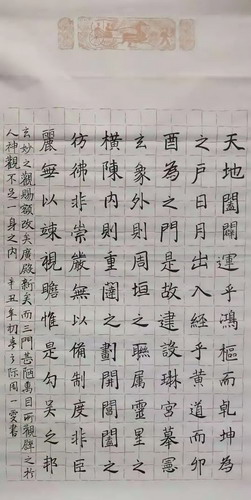 天地闔闢運乎鴻樞而乾坤為
之戶日月出入經乎黃道而卯
酉為之門是故建設琳宮摹憲
玄象外則周垣之聯屬靈星之
橫陳內則重闥之劃開閶闔之
仿彿非崇嚴無以備制度非巨
麗無以竦視瞻惟是勾吳之邦
玄妙之觀賜額改矣廣殿新矣而三門甚陋萬目所觀譬之於
人神觀不足一身之內 辛丑年初